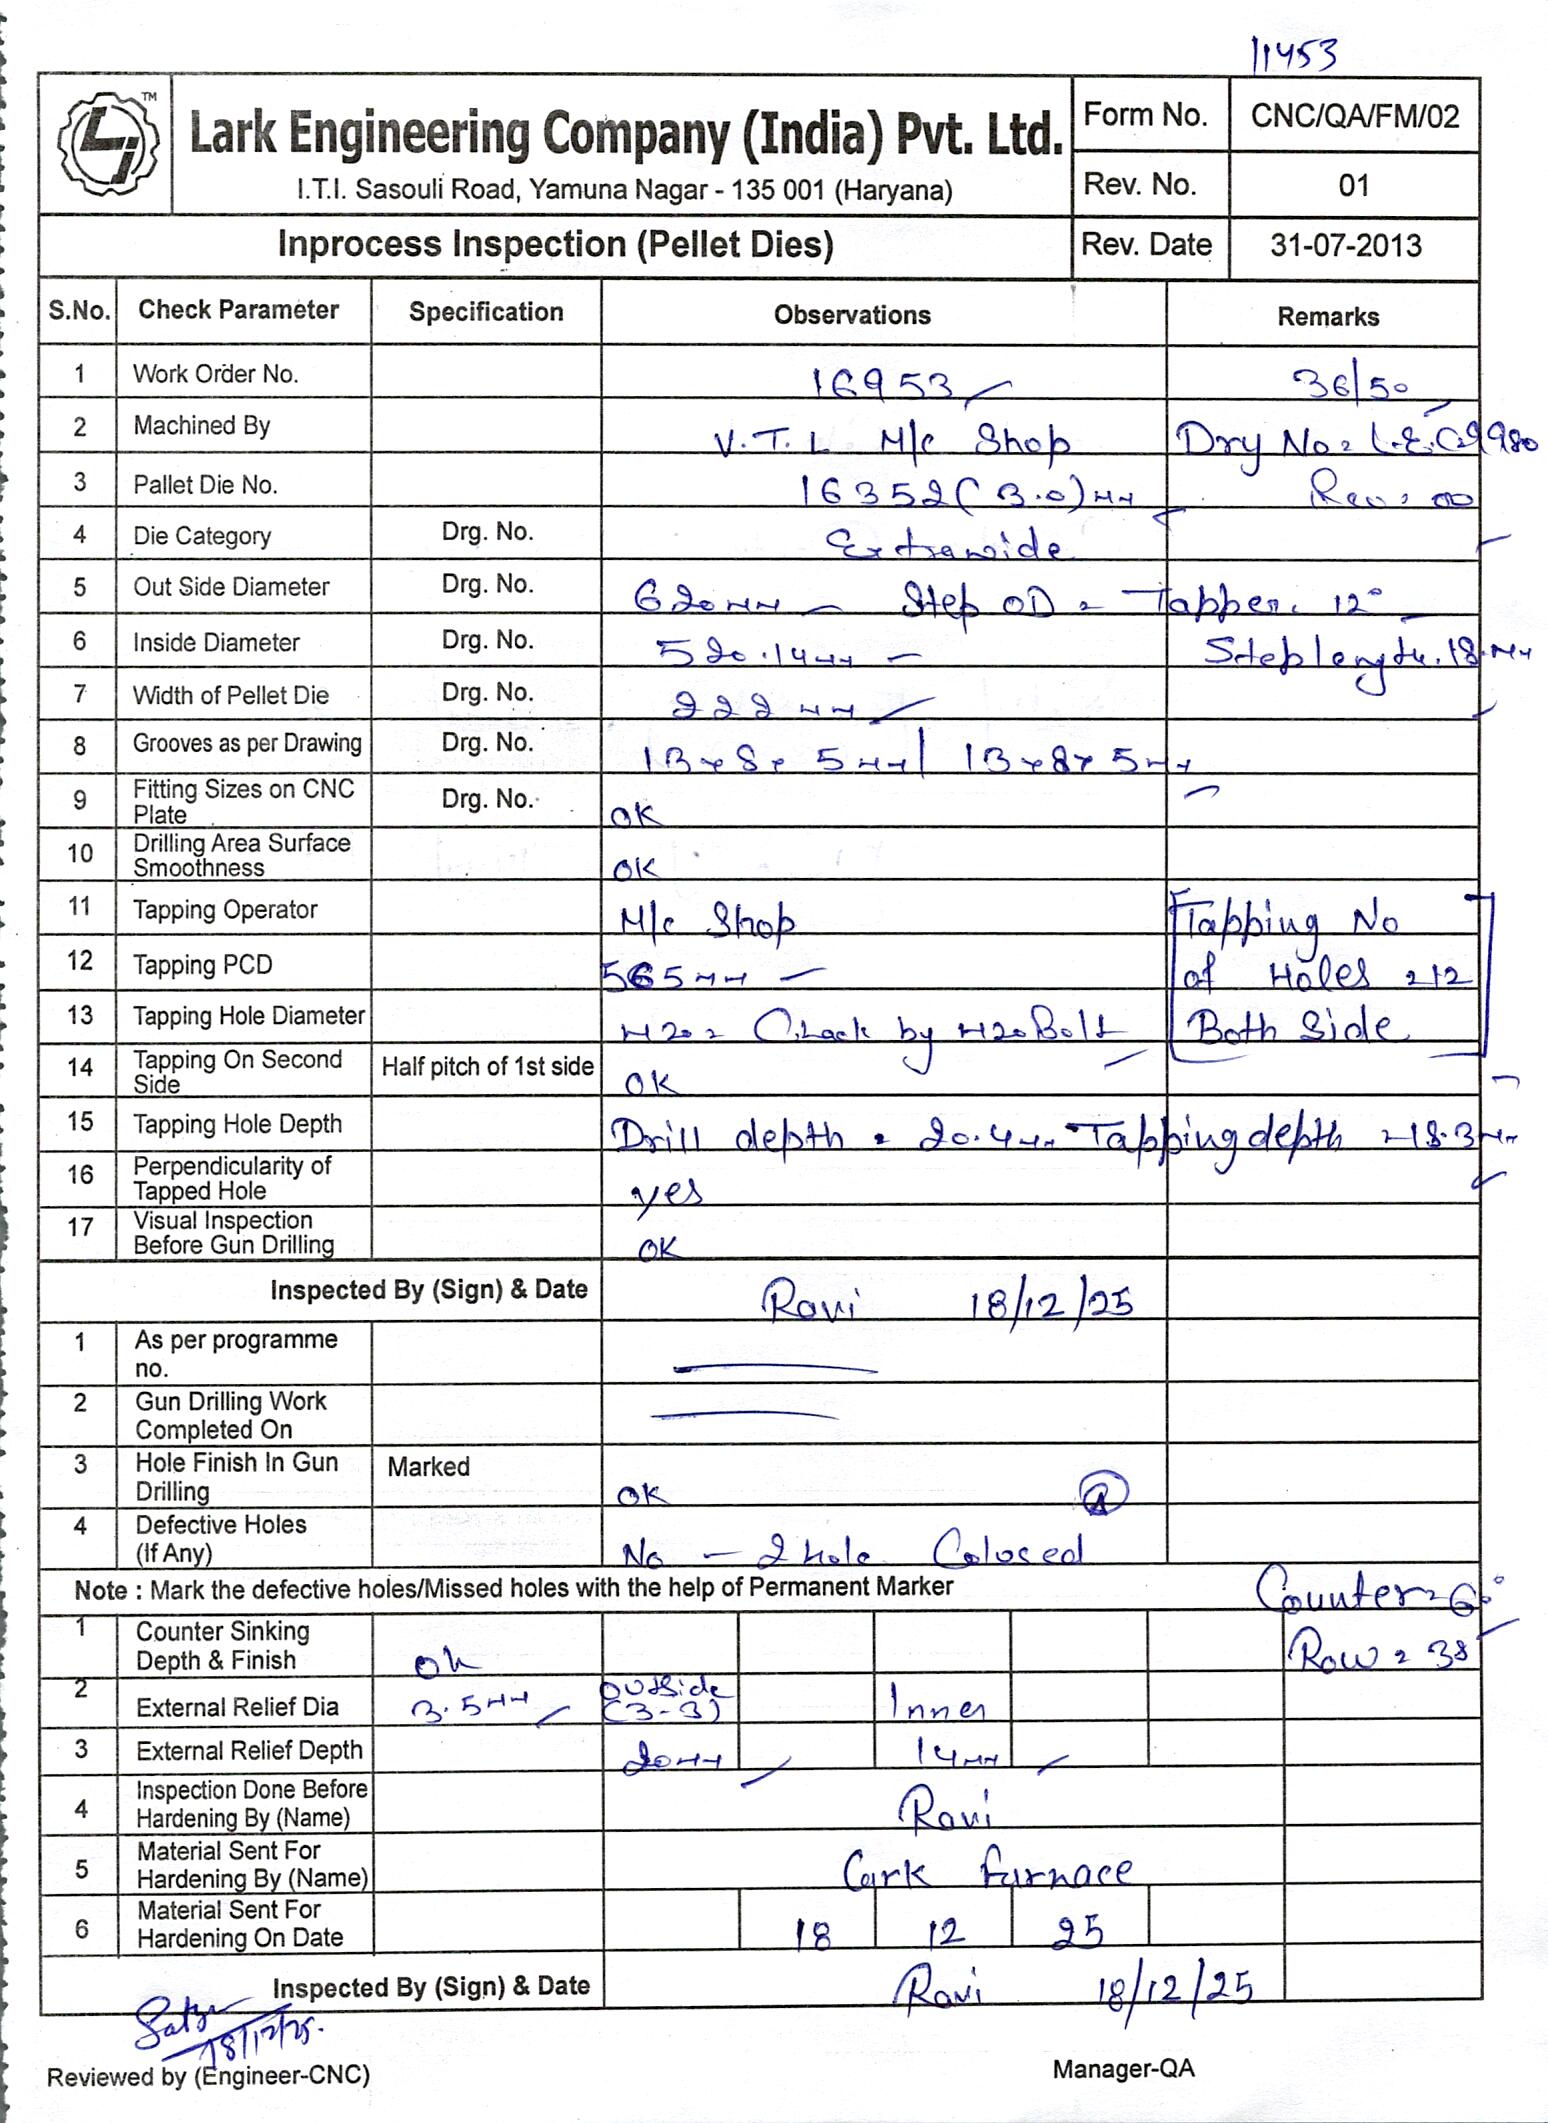 11453
TM
Lark Engineering Company (India) Pvt. Ltd.
I.T.I. Sasouli Road, Yamuna Nagar - 135 001 (Haryana)
Form No. CNC/QA/FM/02
Rev. No. 01
Inprocess Inspection (Pellet Dies) Rev. Date 31-07-2013
S.No. Check Parameter Specification Observations Remarks
1 Work Order No. 16953 36/50
2 Machined By V.T.L M/c Shop Drg No = L.E.C
3 Pallet Die No. 16352 (3.0) MM Rev = 00
4 Die Category Drg. No. Extrawide
5 Out Side Diameter Drg. No. 620MM Step OD = Tapper. 12°
6 Inside Diameter Drg. No. 520.14MM Step length. 18.MM
7 Width of Pellet Die Drg. No. 222 MM
8 Grooves as per Drawing Drg. No. 13x8x5MM | 13x8x5MM
9 Fitting Sizes on CNC Plate Drg. No. OK
10 Drilling Area Surface Smoothness OK
11 Tapping Operator M/c Shop Tapping No
12 Tapping PCD 565MM of Holes =12
13 Tapping Hole Diameter M20 = Check by M20 Bolt Both Side
14 Tapping On Second Side Half pitch of 1st side OK
15 Tapping Hole Depth Drill depth = 20.4MM Tapping depth =18.3MM
16 Perpendicularity of Tapped Hole yes
17 Visual Inspection Before Gun Drilling OK
Inspected By (Sign) & Date Ravi 18/12/25
1 As per programme no.
2 Gun Drilling Work Completed On
3 Hole Finish In Gun Drilling Marked OK
4 Defective Holes (If Any) No - 2 hole Colosed
Note : Mark the defective holes/Missed holes with the help of Permanent Marker Counter=60°
1 Counter Sinking Depth & Finish Ok Row = 38
2 External Relief Dia 3.5MM Outside (3-3) Inner
3 External Relief Depth 20MM 14MM
4 Inspection Done Before Hardening By (Name) Ravi
5 Material Sent For Hardening By (Name) Lark furnace
6 Material Sent For Hardening On Date 18 12 25
Inspected By (Sign) & Date Ravi 18/12/25
18/12/25.
Reviewed by (Engineer-CNC) Manager-QA